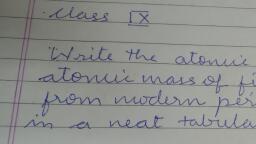 Class IX
Write the atomic
atomic mass of fi
from modern per
in a neat tabula